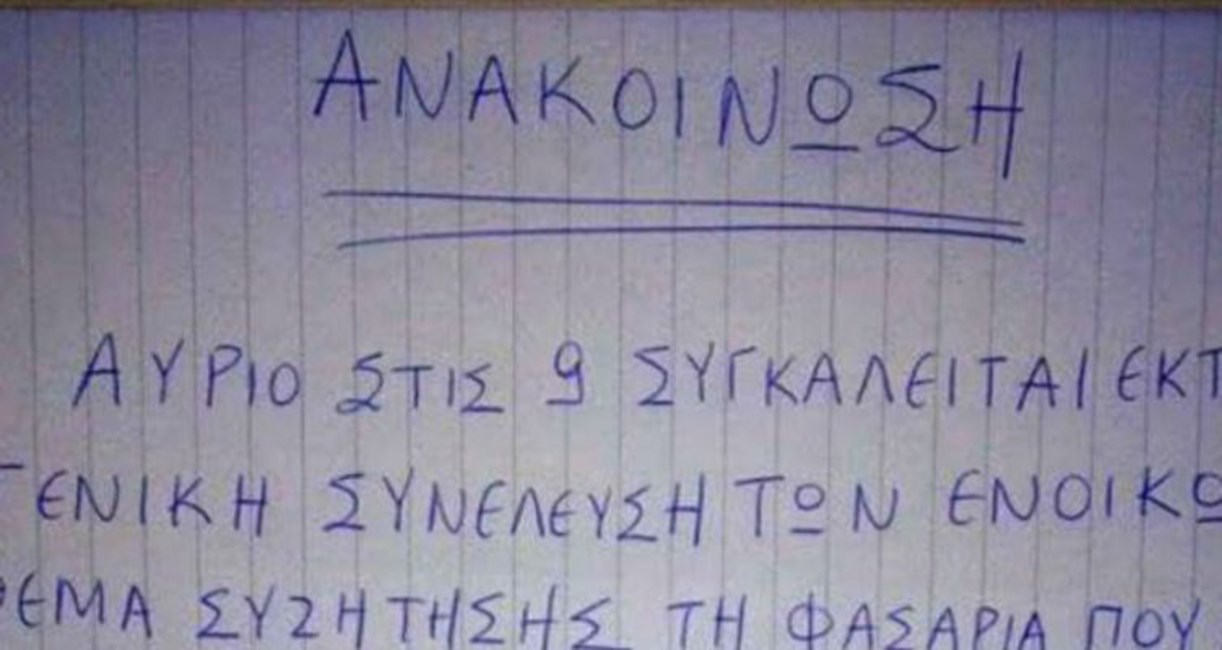 ΑΝΑΚΟΙΝΩΣΗ
ΑΥΡΙΟ ΣΤΙΣ 9 ΣΥΓΚΑΛΕΙΤΑΙ ΕΚΤ
ΓΕΝΙΚΗ ΣΥΝΕΛΕΥΣΗ ΤΩΝ ΕΝΟΙΚΩ
ΘΕΜΑ ΣΥΖΗΤΗΣΗΣ ΤΗ ΦΑΣΑΡΙΑ ΠΟΥ